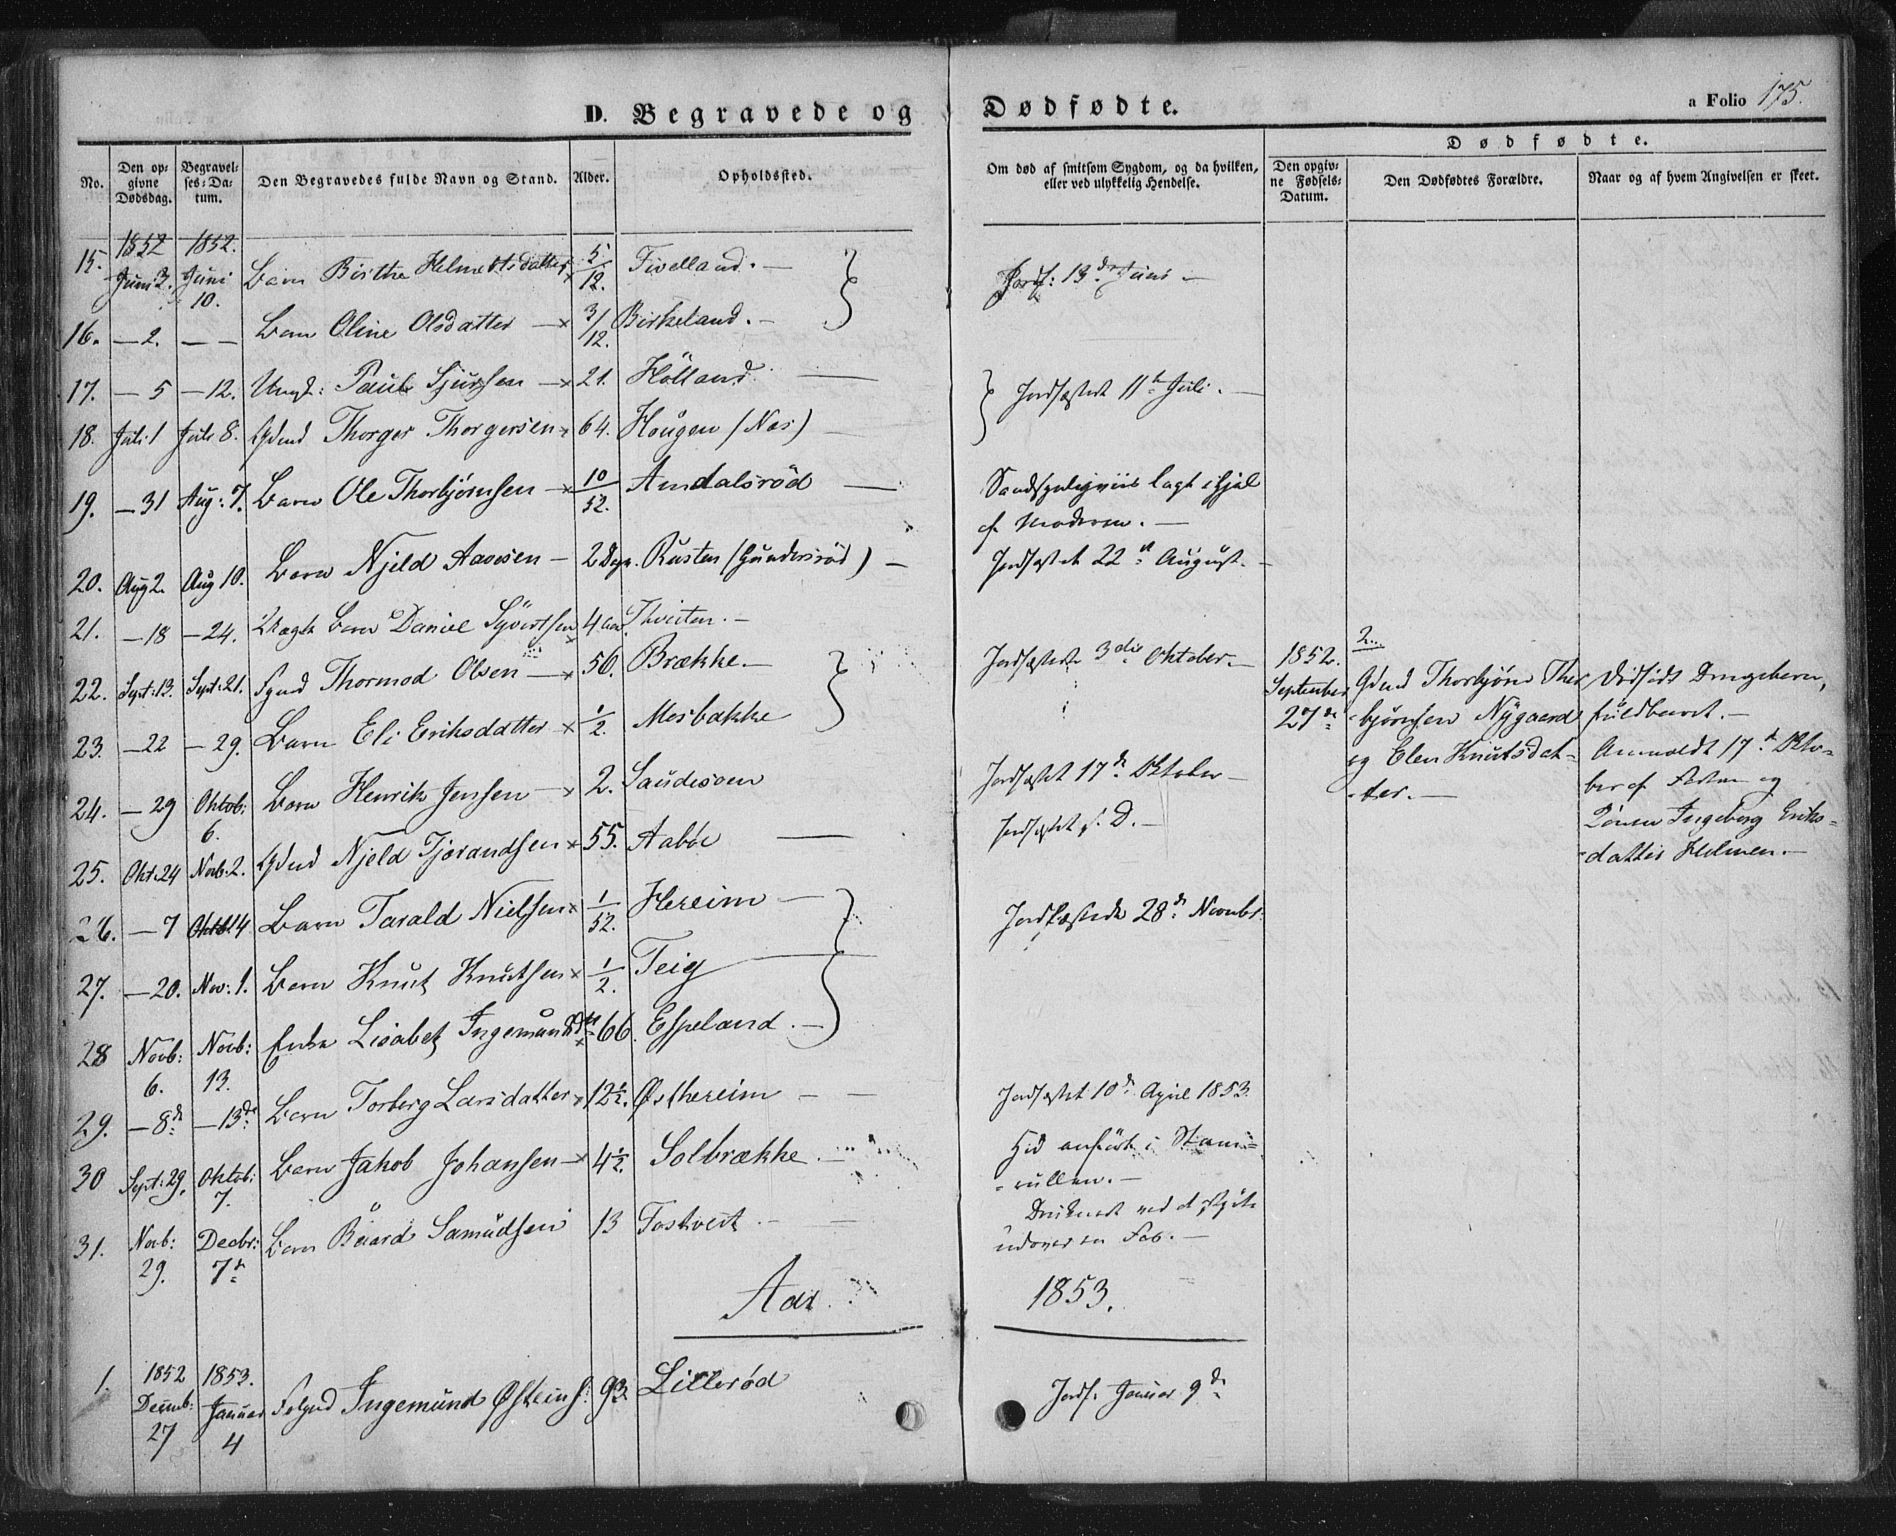 D. Begravede og Dødfødte. a Folio 175.
Dødfødte.
No. Den opgivne Dødsdag. Begravelses-Datum. Den Begravedes fulde Navn og Stand. Alder. Opholdssted. Om død af smitsom Sygdom, og da hvilken, eller ved ulykkelig Hendelse. Den opgivne Fødsels-Datum. Den Dødfødtes Forældre. Naar og af hvem Angivelsen er skeet.
1852 1852.
15. Juni 2. Juni 10. Barn Birthe Helmertsdatter 5/12. Fivelland. Jordf: 13de Juni
16. — 2. — — Barn Oline Olsdatter 3/12. Birkeland.
17. — 5 — 12. Ungk: Paul Sjursen 21. Hölland. Jordfæstede 11te Juli.
18. Juli 1 Juli 8. Gdmd Thorger Thorgersen 64. Hougen (Næs)
19. — 31 Aug: 7. Barn Ole Thorbjørnsen 10/52. Amdalsröd Sandsynligviis lagt ihjel
af Moderen.
20. Aug 2. Aug 10. Barn Njeld Aavesen 2 Dage. Rusten (Gundersröd) Jordfæstet 22de August.
21. — 18 — 24. Barn Daniel Syvertsen 4 Aar. Tveiten.
22. Sept: 13. Sept: 21. Thormod Olsen 56. Brække. Jordfæstede 3die Oktober.
23 — 22 — 29. Barn Eli Eriksdatter 1/2. Mosbakke
24. — 29 Oktob: 6. Barn Henrik Jensen 2. Jordfæstet 17de Oktober
25. Okt: 24 Novb. 2. Gdmd Njeld Tjørandsen 55. Aaböe Jordfæstet s. D.
26. — 7 Oktb. 14 Barn Tarald Nielsen 1/52. Hereim Jordfæstede 28de Novmbr.
27. — 20. Nov: 1. Barn Knut Knutsen 1/2. Teig
28 Novb: 6. Novb: 13. Enke Lisabet Ingemundsdtr 66. Espeland.
29. — 8de — 13de Barn Torberg Larsdatter 12½. Østhereim Jordfæstet 10de April 1853.
30 Sept: 29. Oktob: 7. Barn Jakob Johansen 4½. Solbrække Hid anført i
rullen.
31. Novb: 29. Decbr: 7de Barn Baard Samudsen 13 Tostveit Druknet ved at skyte
udover en Fos.
1852. September 27de
2.
Gdmd Thorbjörn Thor-
bjørnsen Nygaard
og Elen Knutsdat-
ter.
Dödfödt Drengebarn,
fuldbaaret.
Anmeldt 17de Okto-
ber af Faderen og
Konen Ingeborg Eriks-
datter Holmen.
Aar 1853.
1. 1852 Decmb: 27 1853. Januar 4 Ingemund Østeins: 93. Lilleröd Jordf. Januar 9de